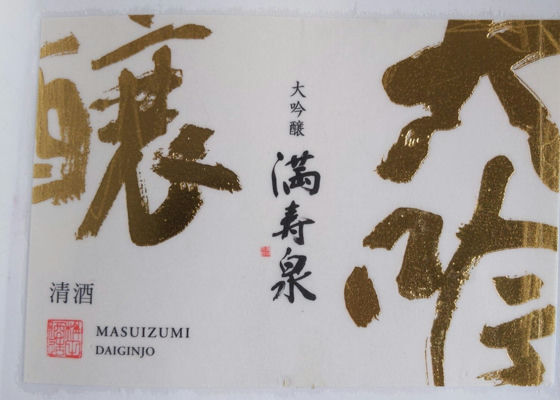 大吟
醸
大吟醸
満寿泉
清酒
MASUIZUMI
DAIGINJO